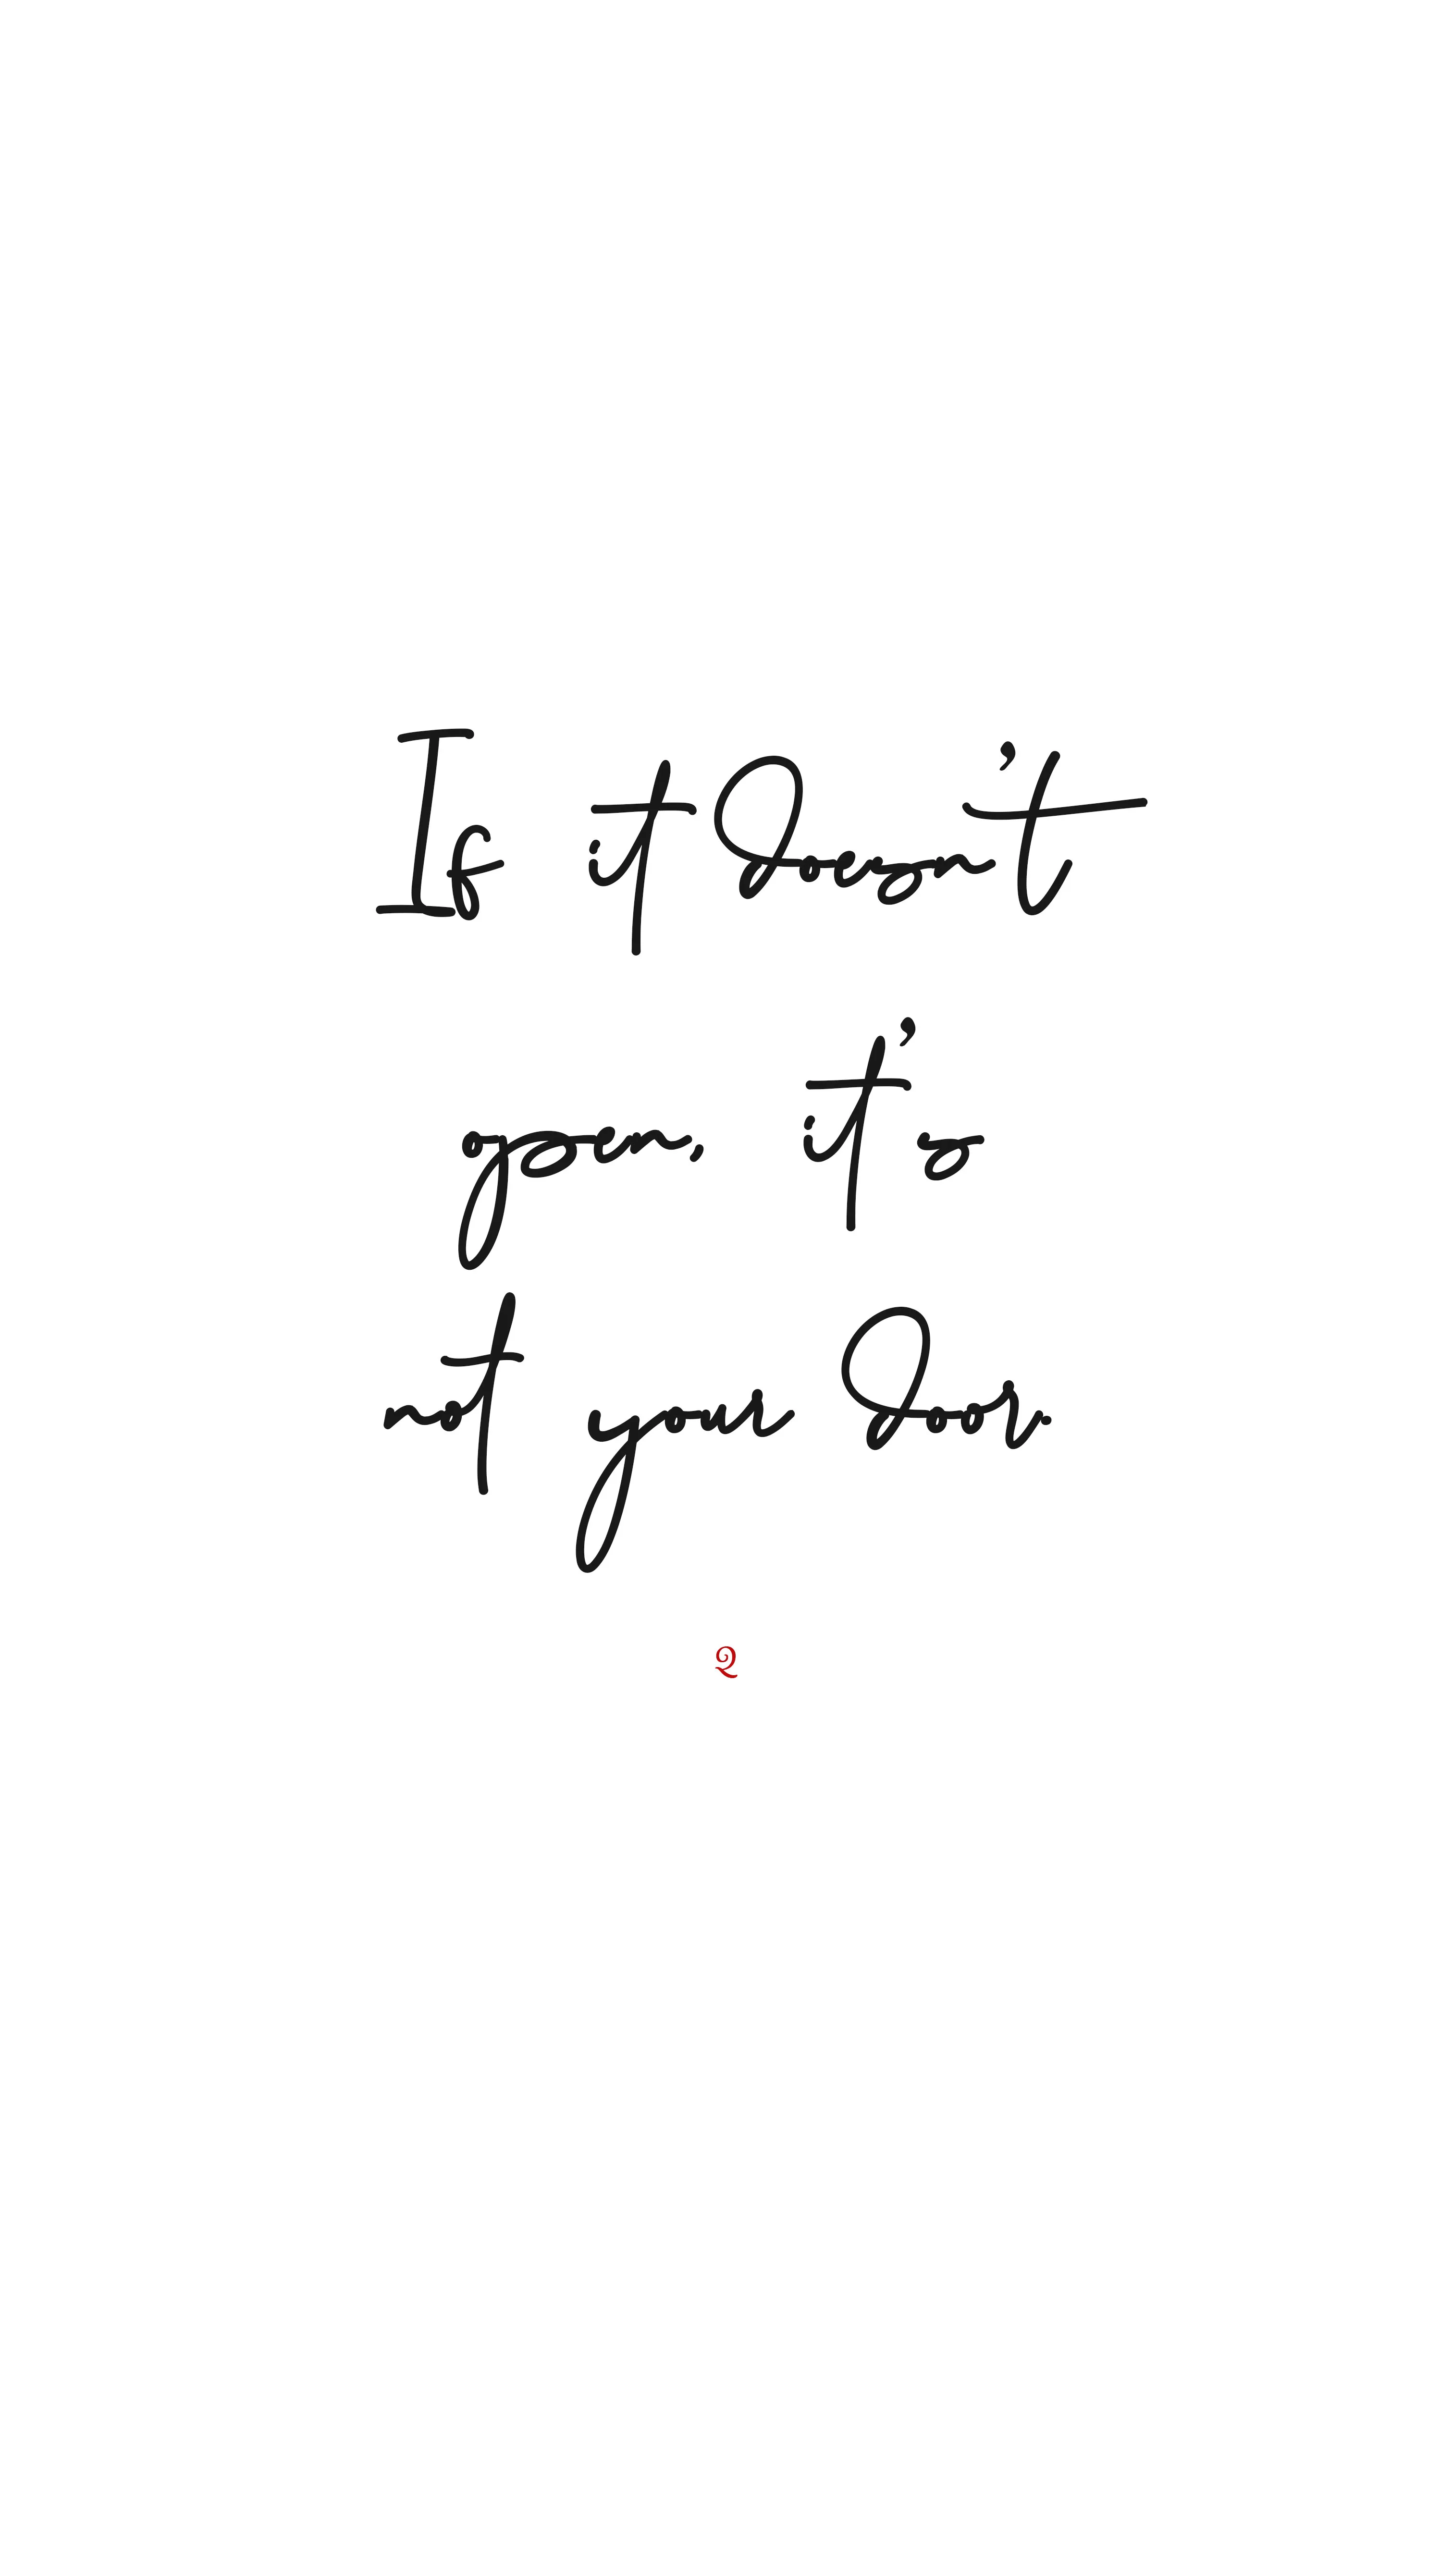 If it doesn't
open, it's
not your door.
Q